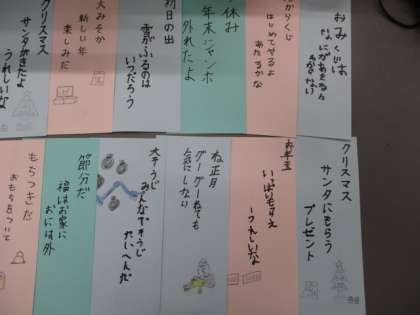 おみくじは
なにがあたるか
たからくじ
はじめてやるよ
あたるかな
休み
年末ジャンボ
外れたよ
初日の出
雪がふるのは
いつだろう
大みそか
新しい年
楽しみだ
クリスマス
サンタがきたよ
うれしいな
クリスマス
サンタにもらう
プレゼント
お年玉
いっぱいもらえ
うれしいな
ね正月
グーグーねても
気にしない
大そうじ
みんなでそうじ
たいへんだ
節分だ
福はお家に
おには外
もちつきだ
おもちをついて